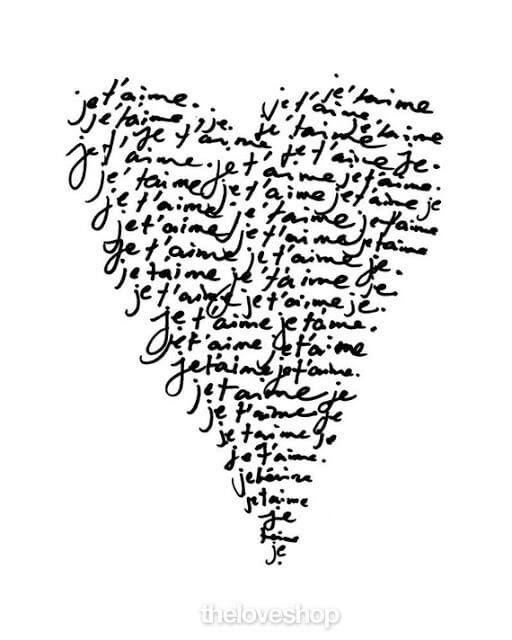 je t'aime. je t'aime
je t'aime je. je t'aime je t'aime
je t'aime je t'aime je t'aime je.
je t'aime. je t'aime je t'aime.
je t'aime je t'aime je t'aime je
je t'aime je t'aime je t'aime
je t'aime je t'aime je t'aime
je t'aime je t'aime je.
je t'aime je t'aime je.
je t'aime je t'aime je.
je t'aime je t'aime.
je t'aime je t'aime
je t'aime je t'aime.
je t'aime je
je t'aime je
je t'aime je
je t'aime.
je t'aime
je
t'aime
je
theloveshop